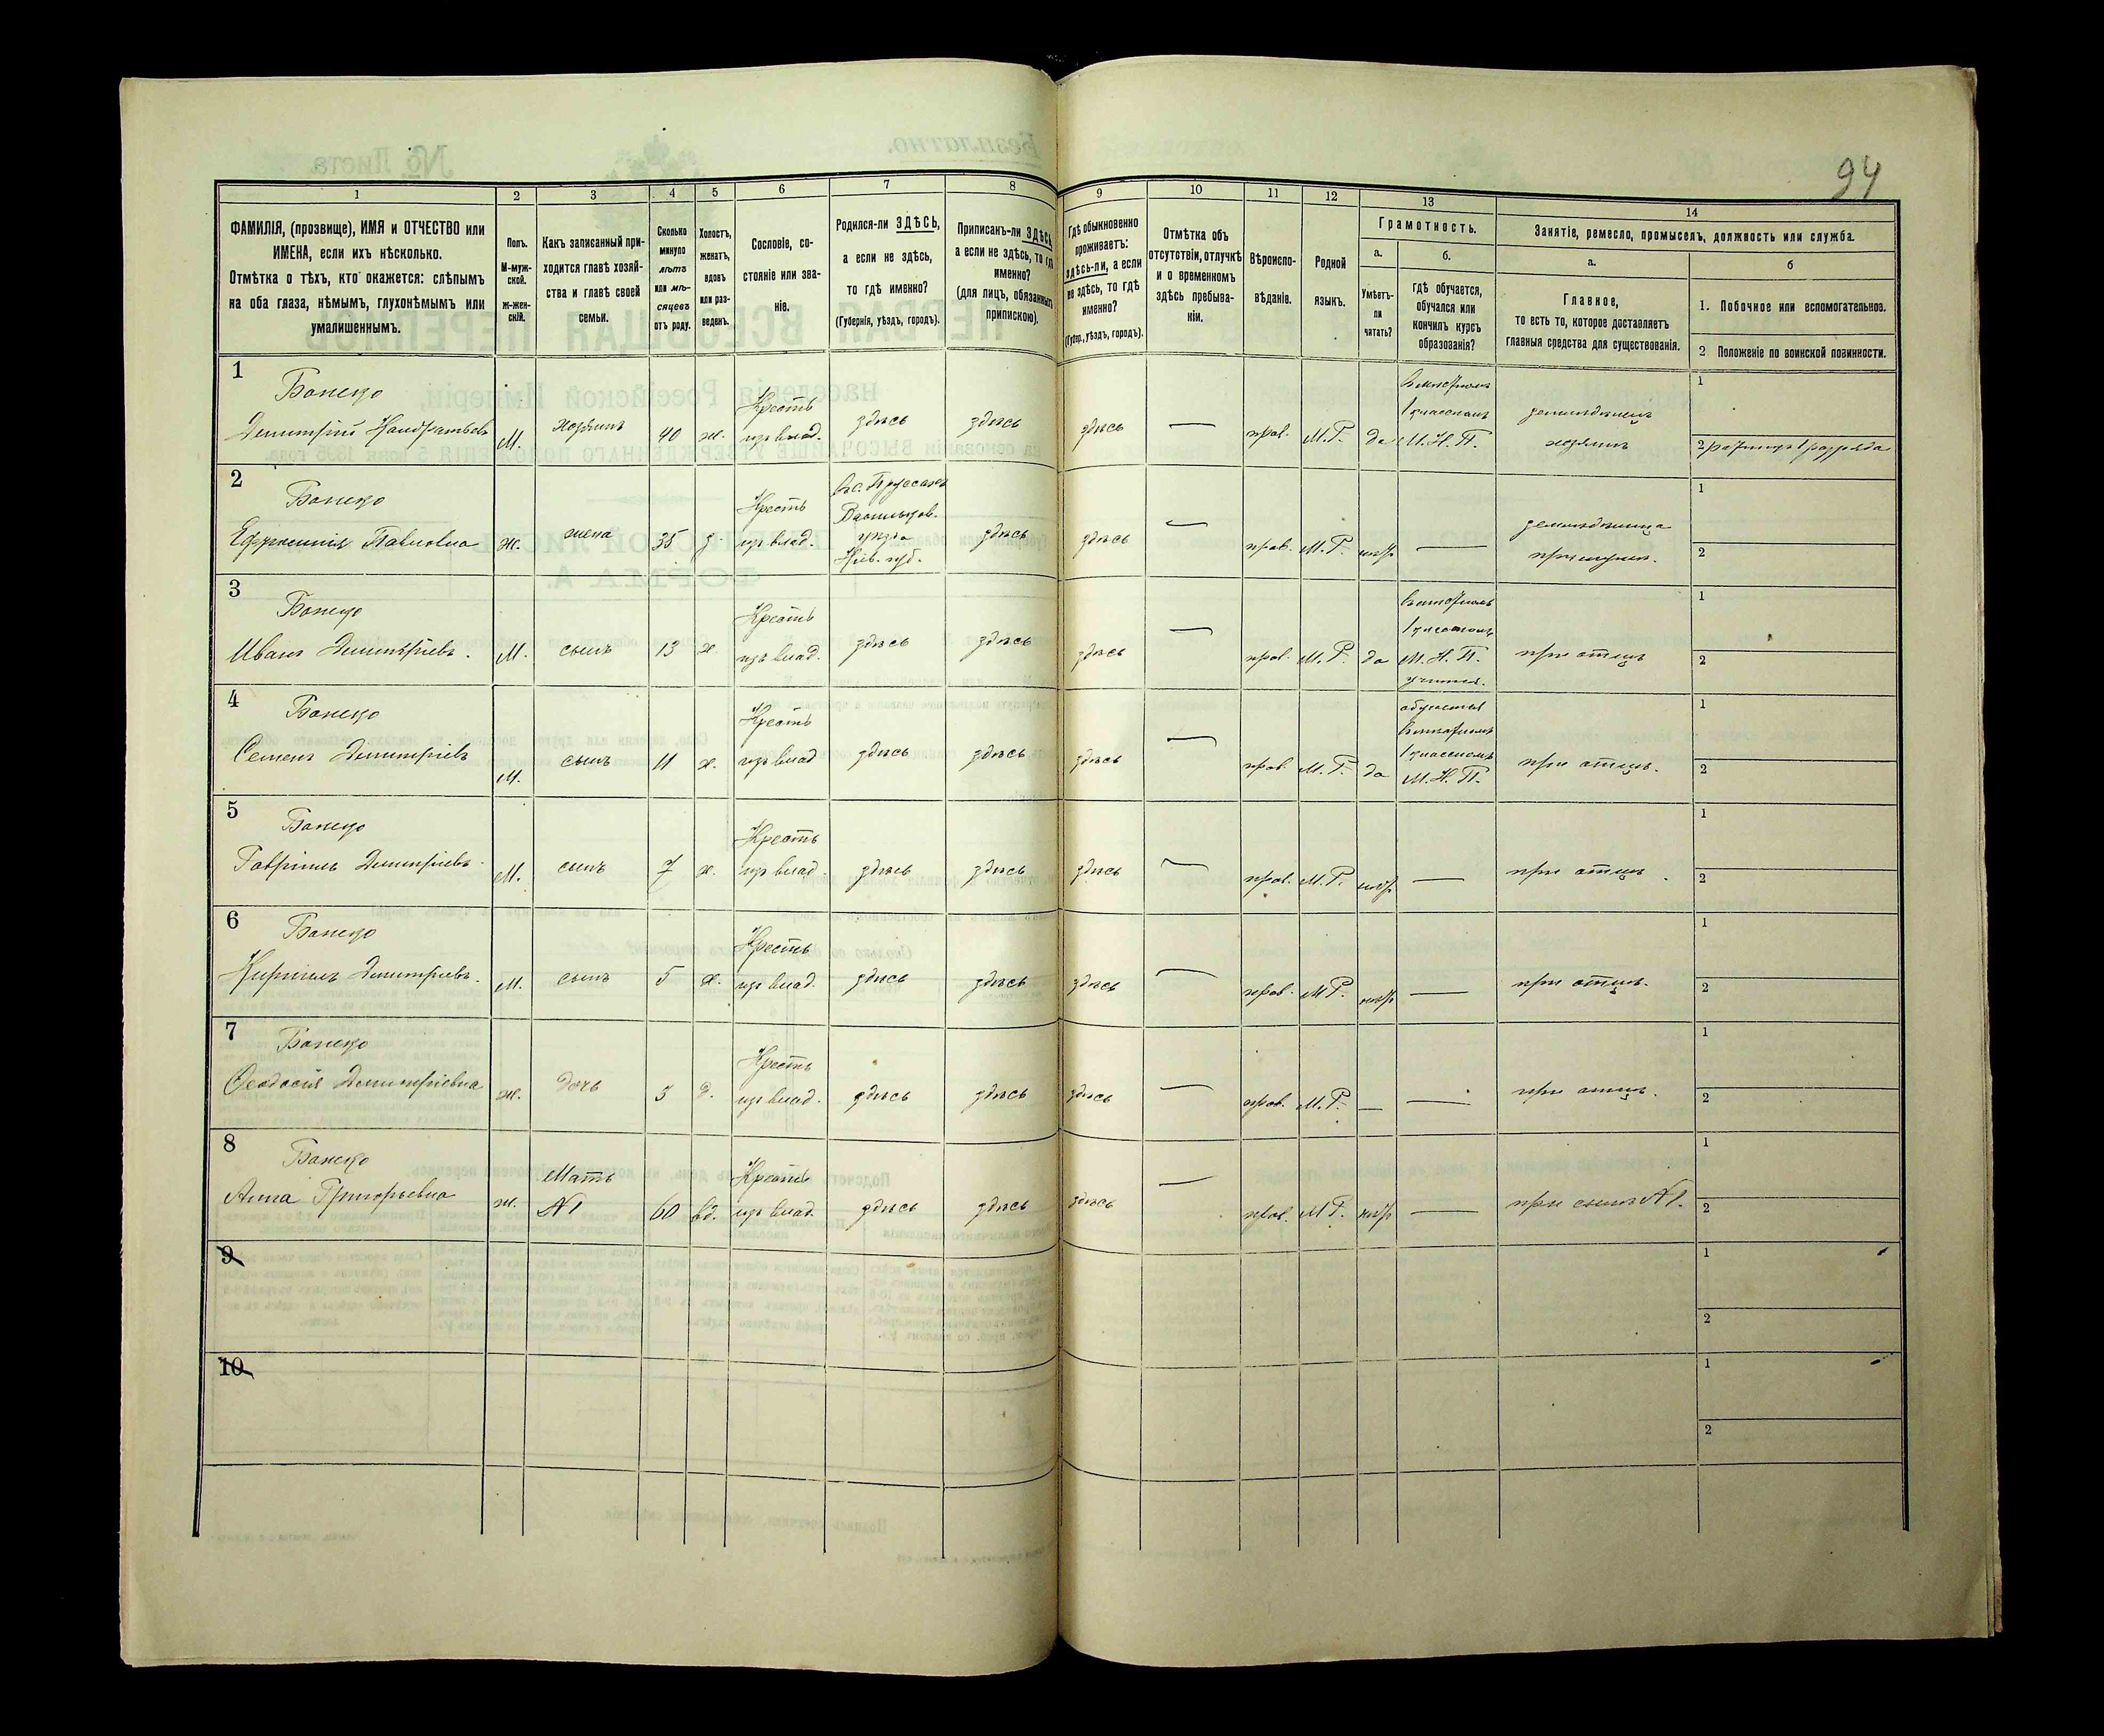 94
1
2
3
4
5
6
7
8
9
10
11
12
13
14
ФАМИЛІЯ, (прозвище), ИМЯ и ОТЧЕСТВО или
ИМЕНА, если ихъ нѣсколько.
Отмѣтка о тѣхъ, кто окажется: слѣпымъ
на оба глаза, нѣмымъ, глухонѣмымъ или
умалишеннымъ.
Полъ.
М-муж-
ской.
ж-жен-
скій.
Какъ записанный при-
ходится главѣ хозяй-
ства и главѣ своей
семьи.
Сколько
минуло
лѣтъ
или мѣ-
сяцевъ
отъ роду.
Холостъ,
женатъ,
вдовъ
или раз-
веденъ.
Сословіе, со-
стояніе или зва-
ніе.
Родился-ли ЗДѢСЬ,
а если не здѣсь,
то гдѣ именно?
(Губернія, уѣздъ, городъ).
Приписанъ-ли ЗДѢСЬ,
а если не здѣсь, то гдѣ
именно?
(для лицъ, обязанныхъ
припискою).
Гдѣ обыкновенно
проживаетъ:
здѣсь-ли, а если
не здѣсь, то гдѣ
именно?
(Губер., уѣздъ, городъ).
Отмѣтка объ
отсутствіи, отлучкѣ
и о временномъ
здѣсь пребыва-
ніи.
Вѣроиспо-
вѣданіе.
Родной
языкъ.
Грамотность.
а.
Умѣетъ-
ли
читать?
б.
гдѣ обучается,
обучался или
кончилъ курсъ
образованія?
Занятіе, ремесло, промыселъ, должность или служба.
а.
Главное,
то есть то, которое доставляетъ
главныя средства для существованія.
б
1. Побочное или вспомогательное.
2 Положеніе по воинской повинности.
1
Дмитрій
М.
хозяинъ
40
ж.
Крестъ
изъ влад.
здѣсь
здѣсь
здѣсь
—
прав.
М.Р.
да
1 классномъ
М. Н. П.
хозяинъ
1
2 ратникъ 1 разряда
2
Павловна
ж.
жена
35
з.
Крестъ
изъ влад.
уѣзда
Кіев. губ.
здѣсь
здѣсь
—
прав.
М. Р.
—
1
2
3
Иванъ Дмитріевъ.
М.
сынъ
13
х
Крестъ
изъ влад.
здѣсь
здѣсь
здѣсь
—
прав.
М. Р.
да
1 классномъ
М. Н. П.
при отцѣ
1
2
4
Семенъ Дмитріевъ
М.
сынъ
11
х.
Крестъ
изъ влад
здѣсь
здѣсь
здѣсь
—
прав.
М. Р.
да
1 классномъ
М. Н. П.
при отцѣ.
1
2
5
Гавріилъ Дмитріевъ.
М.
сынъ
7
х.
Крестъ
изъ влад.
здѣсь
здѣсь
здѣсь
—
прав.
М. Р.
—
при отцѣ.
1
2
6
Кириллъ Дмитріевъ.
М.
сынъ
5
х.
Крестъ
изъ влад.
здѣсь
здѣсь
здѣсь
—
прав.
М Р.
—
при отцѣ.
1
2
7
Ѳеодосія Дмитріевна
ж.
дочь
3
д.
Крестъ
изъ влад.
здѣсь
здѣсь
здѣсь
—
прав.
М. Р.
—
—
при отцѣ.
1
2
8
Анна Григорьевна
ж.
Мать
№1
60
вд.
Крестъ
изъ влад.
здѣсь
здѣсь
здѣсь
—
прав.
М Р.
—
при сынѣ №1.
1
2
9
1
2
10
1
2